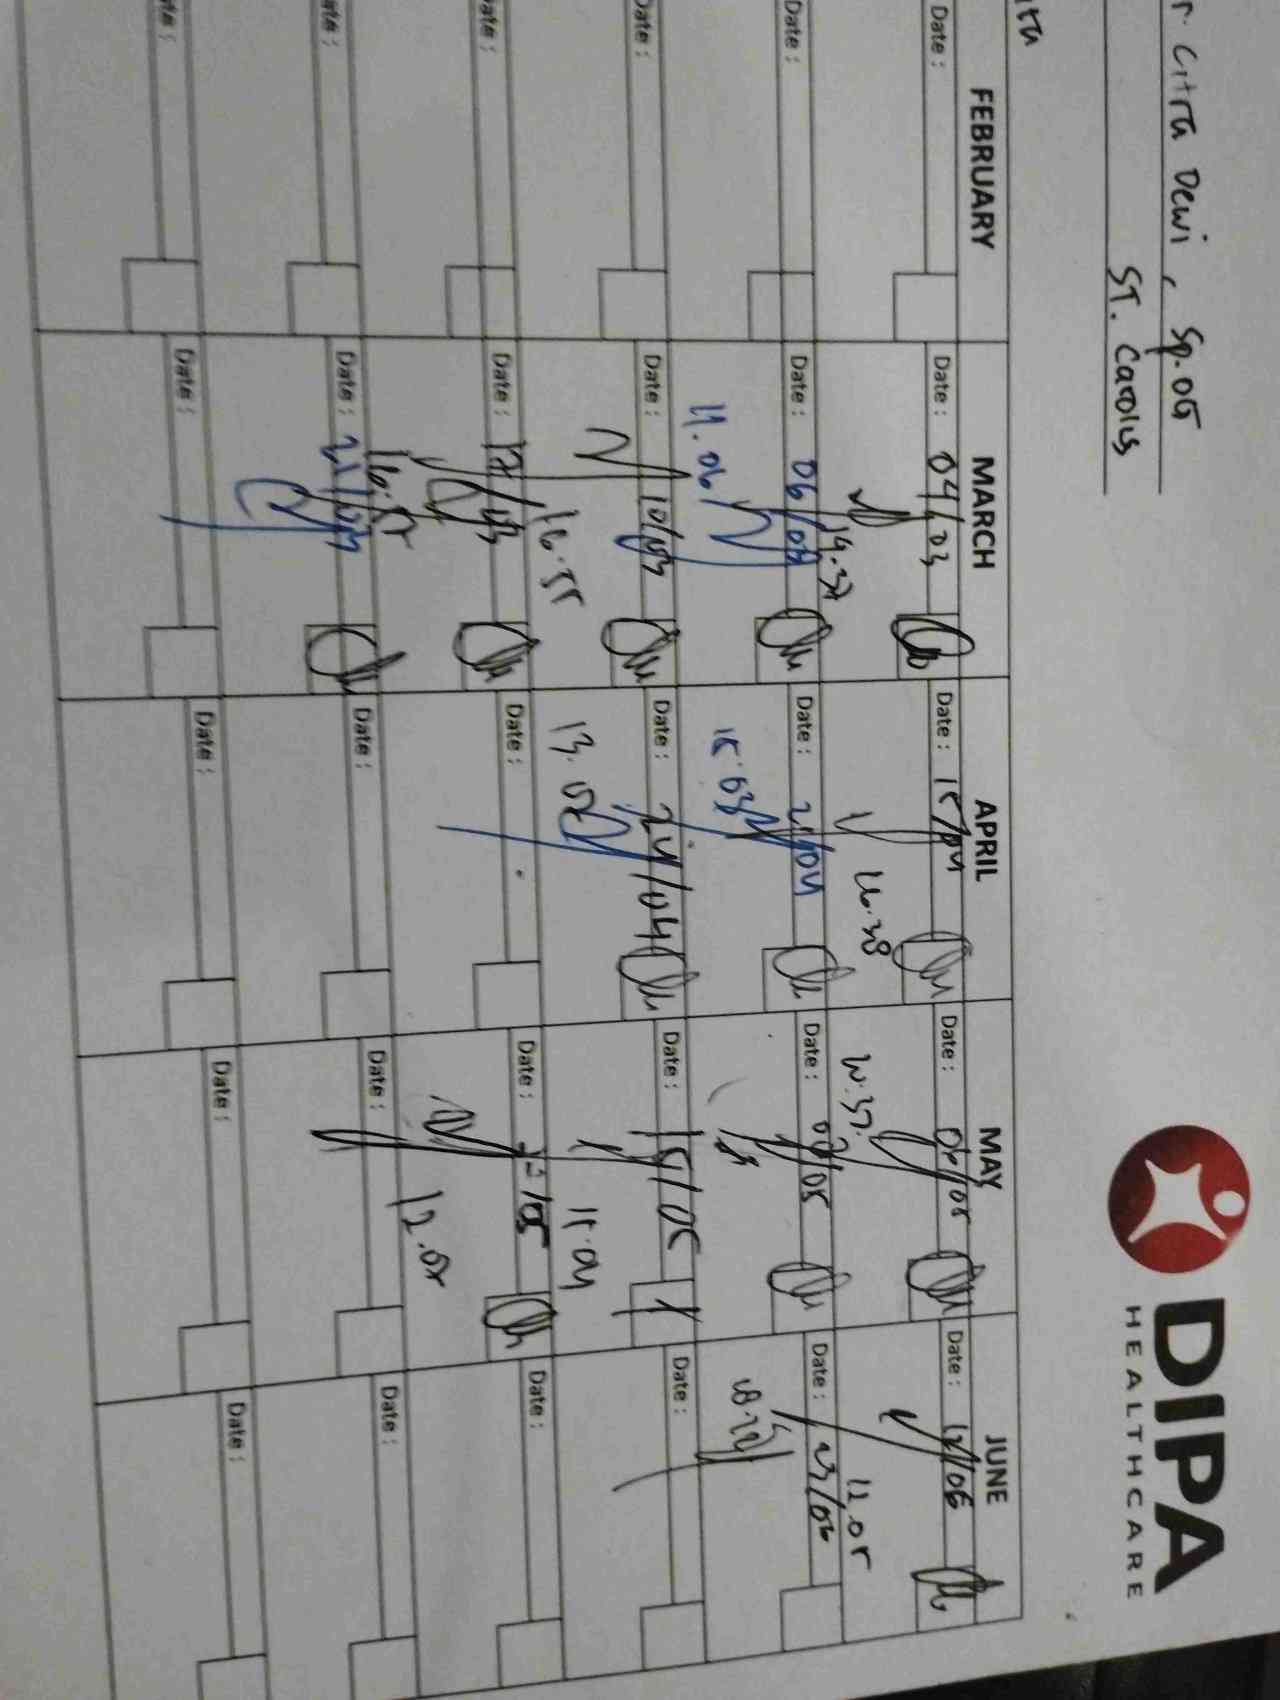 r. Citra Dewi, Sp.OG
ST. Carolus
DIPA
HEALTHCARE
FEBRUARY MARCH APRIL MAY JUNE
Date : Date : 04/03 Date : 15/04 Date : 06/05 Date : 12/06
14.37 16.38 12.05
Date : Date : 06/03 Date : 21/04 Date : Date : 23/06
11.06 15.03
Date : Date : 10/03 Date : 24/04 Date : 15/05 Date :
16.55 13.02 11.04
Date : Date : 17/03 Date : Date : Date :
16.57 12.05
Date : Date : 21/03 Date : Date : Date :
ate : Date : Date : Date : Date :